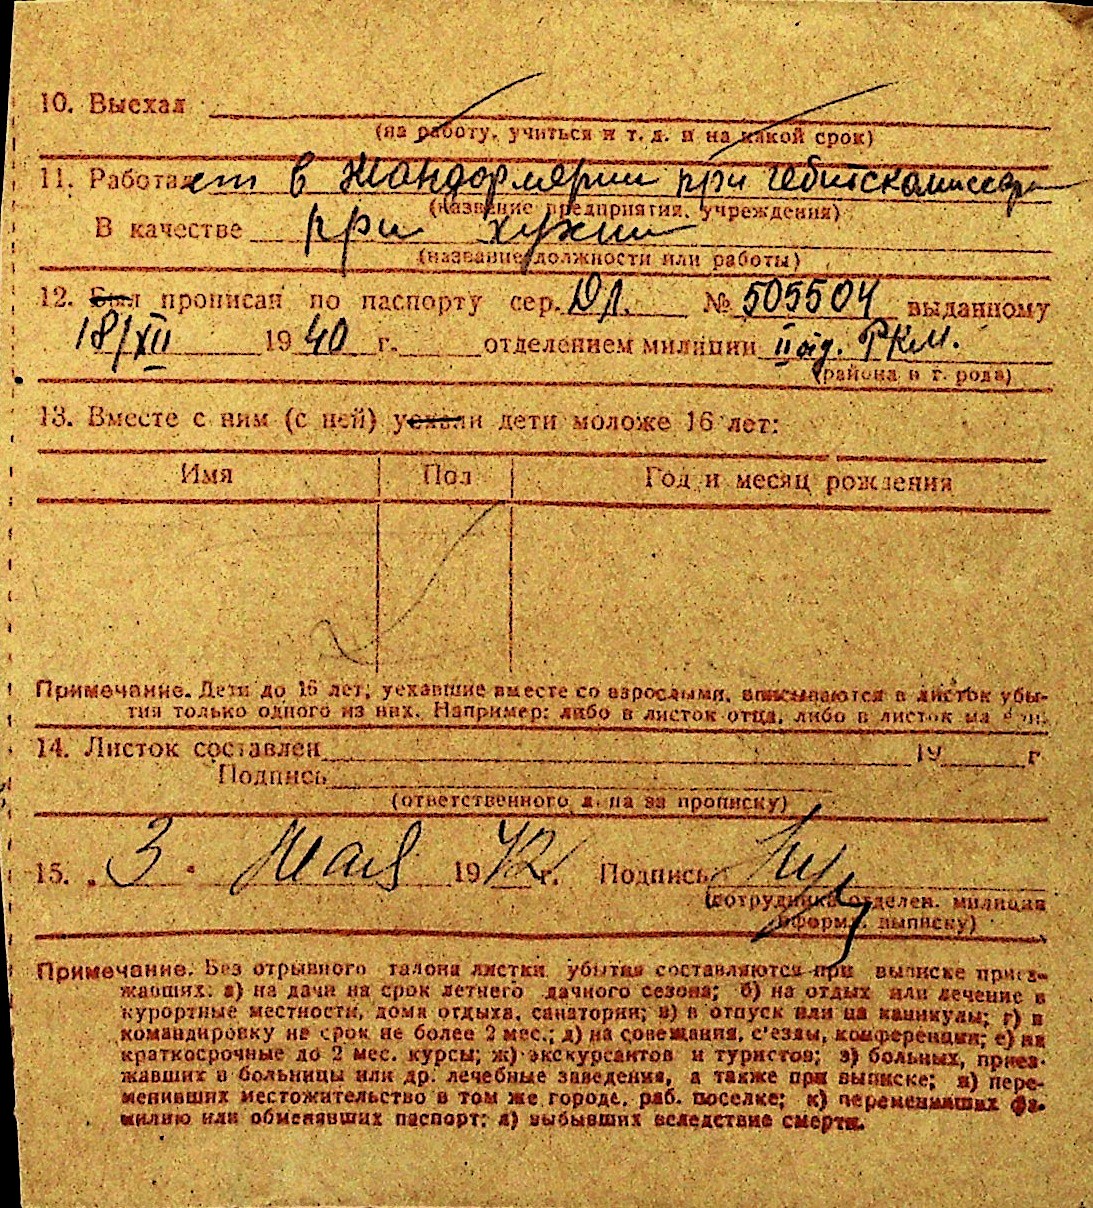 10. Выехал
(на работу, учиться и т. д. и на какой срок)
11. Работает в жандармерии при гебитскомиссари
(название предприятия, учреждения)
В качестве при кухни
(название должности или работы)
12. Был прописан по паспорту сер. ДЛ. № 505504 выданному
18/XII 1940 г. отделением милиции II од. РКМ.
(района и города)
13. Вместе с ним (с ней) уехали дети моложе 16 лет:
Имя Пол Год и месяц рождения
Примечание. Дети до 16 лет, уехавшие вместе со взрослыми, вписываются в листок убы-
тия только одного из них. Например: либо в листок отца, либо в листок матери.
14. Листок составлен 19 г
Подпись
(ответственного л-ца за прописку)
15. "3" Мая 1942 г. Подпись
(сотрудника отделен. милиции
оформ. выписку)
Примечание. Без отрывного талона листки убытия составляются при выписке приез-
жавших: а) на дачи на срок летнего дачного сезона; б) на отдых или лечение в
курортные местности, дома отдыха, санатории; в) в отпуск или на каникулы; г) в
командировку не срок не более 2 мес.; д) на совещания, с'езды, конференции; е) на
краткосрочные до 2 мес. курсы; ж) экскурсантов и туристов; з) больных, приез-
жавших в больницы или др. лечебные заведения, а также при выписке; и) пере-
менивших местожительство в том же городе, раб. поселке; к) переменивших фа-
милию или обменявших паспорт; л) выбывших вследствие смерти.